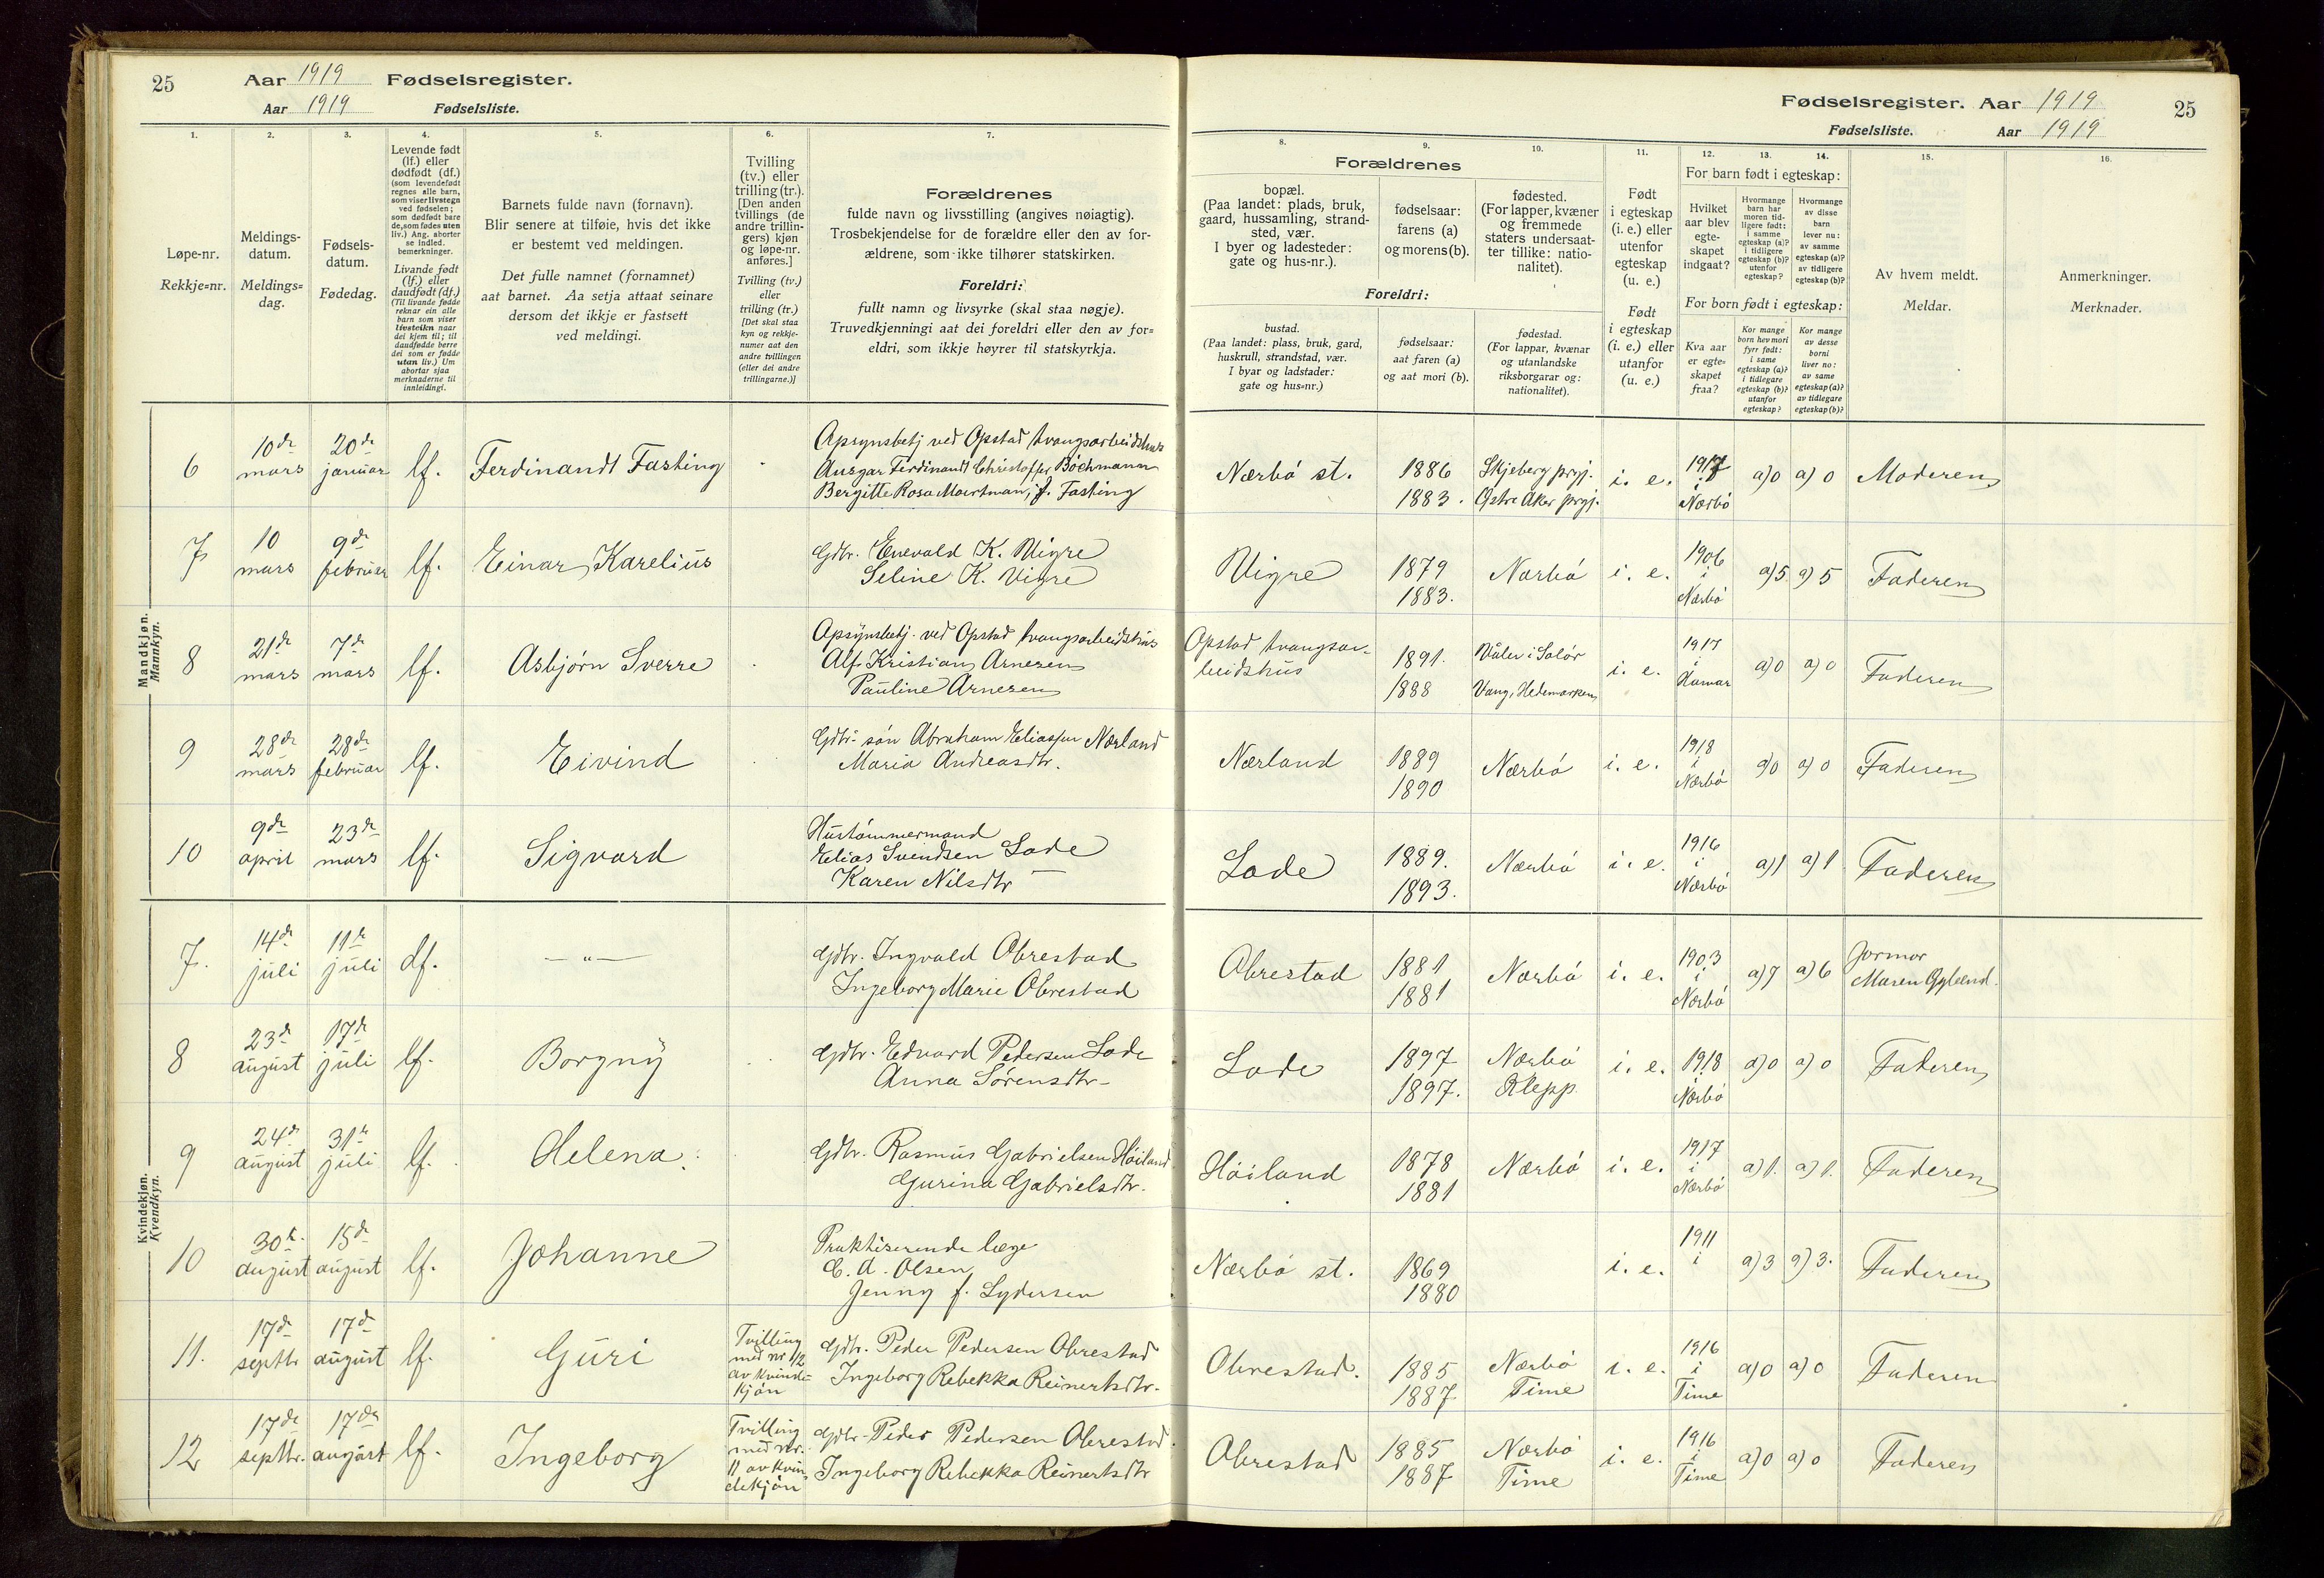 25
Aar 1919 Fødselsregister.
Aar 1919 Fødselsliste.
Fødselsregister. Aar 1919
25
Fødselsliste. Aar 1919
1. 2. 3. 4. 5. 6. 7.
8. 9. 10. 11. 12. 13. 14. 15. 16.
Løpe-nr.
Rekkje=nr.
Meldings-
datum.
Meldings=
dag.
Fødsels-
datum.
Fødedag.
Levende født
(lf.) eller
dødfødt (df.)
(som levendefødt
regnes alle barn,
som viser livstegn
ved fødselen;
som dødfødt bare
de, som fødes uten
liv.) Ang. aborter
se indled.
bemerkninger.
Livande født
(lf.) eller
daudfødt (df.)
(Til livande fødde
reknar ein alle
barn som viser
livsteikn naar
dei kjem til; til
daudfødde berre
dei som er fødde
utan liv.) Um
abortar sjaa
merknaderne til
innleidingi.
Barnets fulde navn (fornavn).
Blir senere at tilføie, hvis det ikke
er bestemt ved meldingen.
Det fulle namnet (fornamnet)
aat barnet. Aa setja attaat seinare
dersom det ikkje er fastsett
ved meldingi.
Tvilling
(tv.) eller
trilling (tr.).
[Den anden
tvillings (de
andre trillin-
gers) kjøn
og løpe-nr.
anføres.]
Tvilling (tv.)
eller
trilling (tr.)
[Det skal staa
kyn og rekkje-
numer aat den
andre tvillingen
(eller dei andre
trillingarne.)]
Forældrenes
fulde navn og livsstilling (angives nøiagtig).
Trosbekjendelse for de forældre eller den av for-
ældrene, som ikke tilhører statskirken.
Foreldri:
fullt namn og livsyrke (skal staa nøgje).
Truvedkjenningi aat dei foreldri eller den av for=
eldri, som ikkje høyrer til statskyrkja.
Forældrenes
bopæl.
(Paa landet: plads, bruk,
gaard, hussamling, strand-
sted, vær.
I byer og ladesteder:
gate og hus-nr.).
fødselsaar:
farens (a)
og morens (b).
fødested.
(For lapper, kvæner
og fremmede
staters undersaat-
ter tillike: natio-
nalitet).
Foreldri:
bustad.
(Paa landet: plass, bruk, gard,
huskrull, strandstad, vær.
I byar og ladstader:
gate og hus=nr.)
fødselsaar:
aat faren (a)
og aat mori (b).
fødestad.
(For lappar, kvænar
og utanlandske
riksborgarar og:
nationalitet).
Født
i egteskap
(i. e.) eller
utenfor
egteskap
(u. e.)
Født
i egteskap
(i. e.) eller
utanfor
(u. e.)
For barn født i egteskap:
Hvilket
aar blev
egte-
skapet
indgaat?
Hvormange
barn har
moren tid-
ligere født:
i samme
egteskap (a)?
i tidligere
egteskap (b)?
utenfor
egteskap?
Hvormange
av disse
barn
lever nu:
av samme
egteskap (a)?
av tidligere
egteskap (b)?
For born født i egteskap:
Kva aar
er egte=
skapet
fraa?
Kor mange
born hev mori
fyrr født:
i same
egteskap (a)?
i tidlegare
egteskap (b)?
utanfor
egteskap?
Kor mange
av desse
borni
liver no:
av same
egteskap (a)?
av tidlegare
egteskap (b)?
Av hvem meldt.
Meldar.
Anmerkninger.
Merknader.
Mandkjøn.
Mannkyn.
6 10de mars 20de januar lf. Ferdinandt Fasting
Opsynsbetj ved Opstad tvangsarbeidshus
Ansgar Ferdinandt Christoffer Bochmann
Bergitte Rosa Martman, f. Fasting
Nærbó st. 1886 1883. Skjeberg prgj. Østre Aker prgj. i. e. 1917 i Nærbó a) 0 a) 0 Moderen
7 10 mars 9de februar lf. Einar Karelius
Gdbr. Enevald K. Vigre
Seline K. Vigre
Vigre 1879 1883. Nærbó i. e. 1906 i Nærbó a) 5 a) 5 Faderen
8 21de mars 7de mars lf. Asbjørn Sverre
Opsynsbetj. ved Opstad tvangsarbeidshus
Alf Kristian Arnesen
Pauline Arnesen
Opstad tvangsar-
beidshus 1891. 1888 Våler i Solór Vang, Hedemarken i. e. 1917 i Hamar a) 0 a) 0 Faderen
9 28de mars 28de februar lf. Eivind
Gdbr. són Abraham Eliassen Nærland
Maria Andreasdtr.
Nærland 1889 1890 Nærbó i. e. 1918 i Nærbó a) 0 a) 0 Faderen
10 9de april 23de mars lf. Sigvard
Hustómmermand
Elias Svendsen Lode
Karen Nilsdtr —
Lode 1889. 1893. Nærbó i. e. 1916 i Nærbó a) 1 a) 1 Faderen
Kvindekjøn.
Kvendkyn.
7. 14de juli 11te juli df. — „ —
Gdbr. Ingvald Obrestad
Ingeborg Marie Obrestad
Obrestad 1881 1881 Nærbó i. e. 1903 i Nærbó a) 7 a) 6 Jormor
Maren Gyland.
8 23de august 17de juli lf. Borgny
Gdbr. Edvard Pedersen Lode
Anna Sórensdtr-
Lode 1897 1897. Nærbó Klepp. i. e. 1918 i Nærbó a) 0 a) 0 Faderen
9 24de august 31te juli lf. Helena.
Gdbr. Rasmus Gabrielsen Hóiland
Gurina Gabrielsdtr.
Hóiland 1878 1881 Nærbó i. e. 1917 i Nærbó a) 1. a) 1. Faderen
10 30te august 15de august lf. Johanne
Praktiserende læge
C. A. Olsen
Jenny f. Lydersen
Nærbó st. 1869 1880 i. e. 1911 i a) 3 a) 3. Faderen
11. 17de septbr 17de august lf. Guri
Tvilling
med nr 12
av kvinde-
kjón
Gdbr. Peder Pedersen Obrestad
Ingeborg Rebekka Reinertsdtr.
Obrestad. 1885 1887 Nærbó Time i. e. 1916 i Time a) 0 a) 0 Faderen
12 17de septbr. 17de august lf. Ingeborg
Tvilling
med nr.
11 av kvin
dekjón
Gdbr. Peder Pedersen Obrestad.
Ingeborg Rebekka Reinertsdtr
Obrestad 1885 1887 Nærbó Time i. e. 1916 i Time a) 0 a) 0 Faderen